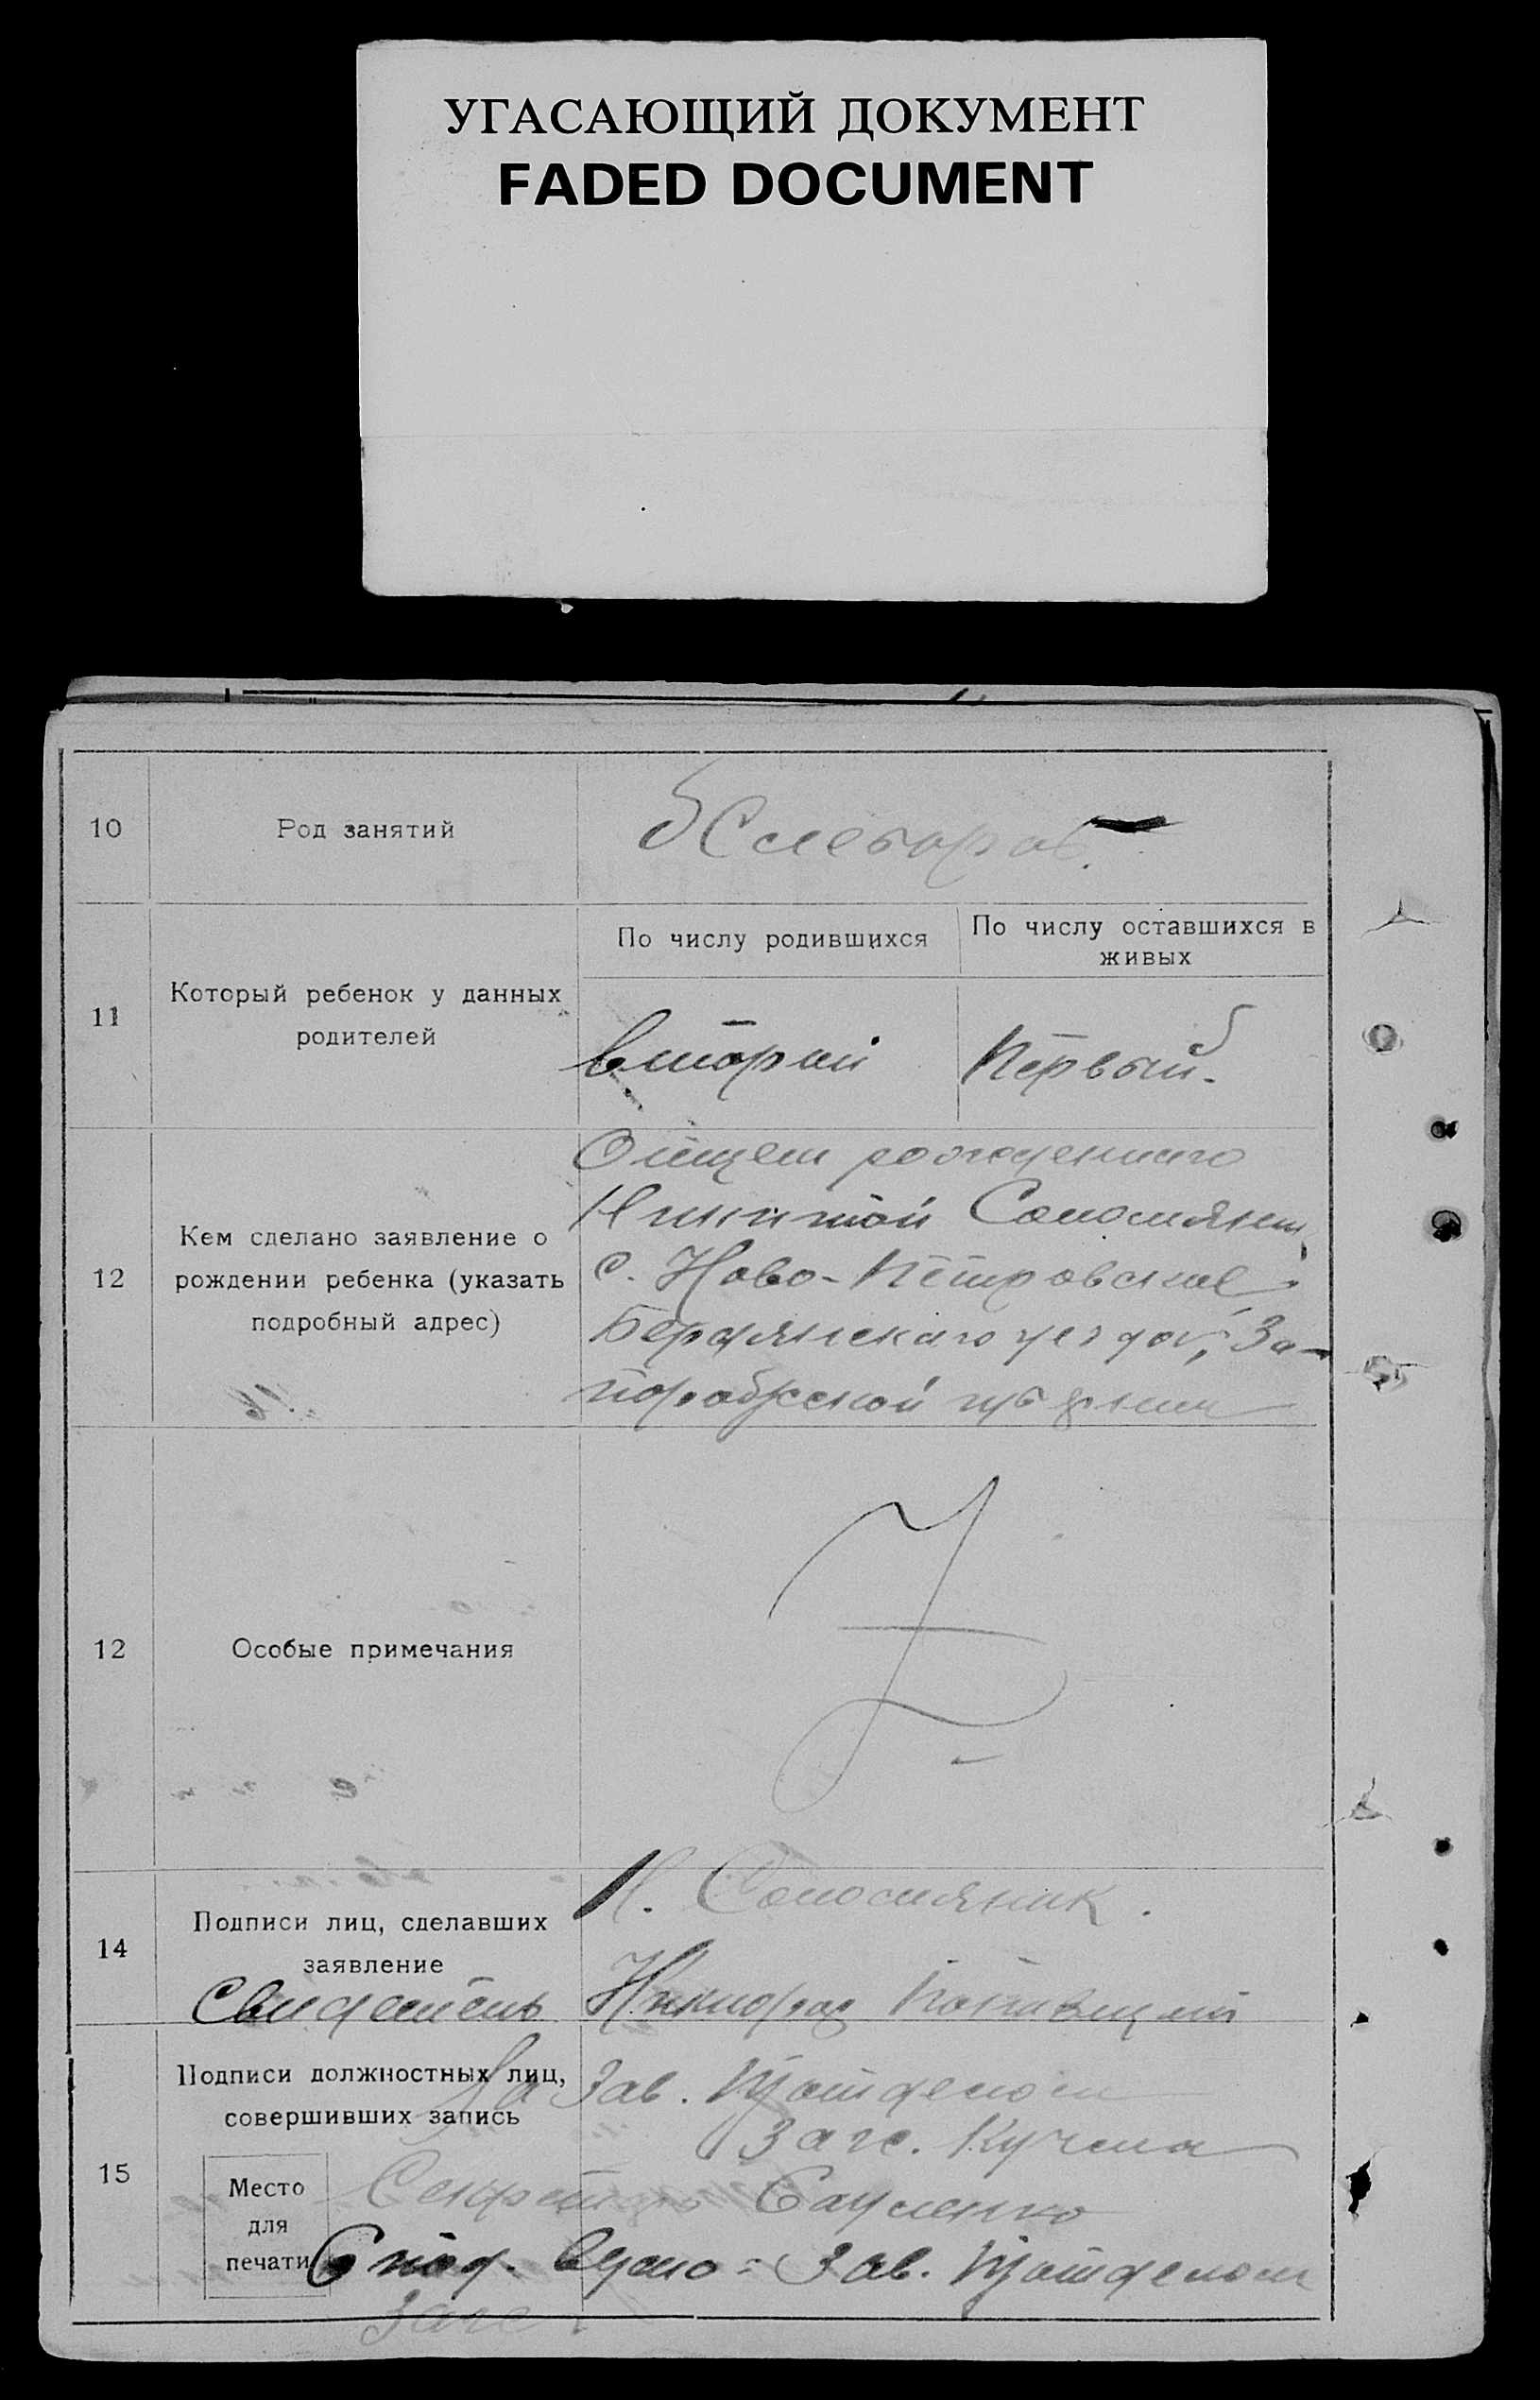 УГАСАЮЩИЙ ДОКУМЕНТ
FADED DOCUMENT
10
Род занятий
11
Который ребенок у данных
родителей
По числу родившихся
По числу оставшихся в
живых
вторый
Первый.
12
Кем сделано заявление о
рождении ребенка (указать
подробный адрес)
Отцем рожденнаго
Никитой
с. Ново-Петровское
Бердянскаго уезда, За-
порожской губернии
12
Особые примечания
14
Подписи лиц, сделавших
заявление
Свидетель
Н. Соломяник.
15
Подписи должностных лиц,
совершивших запись
За Зав.
Загс. Кучма
Секретарь
Место
для
печати
С под. верно: Зав.
Загс